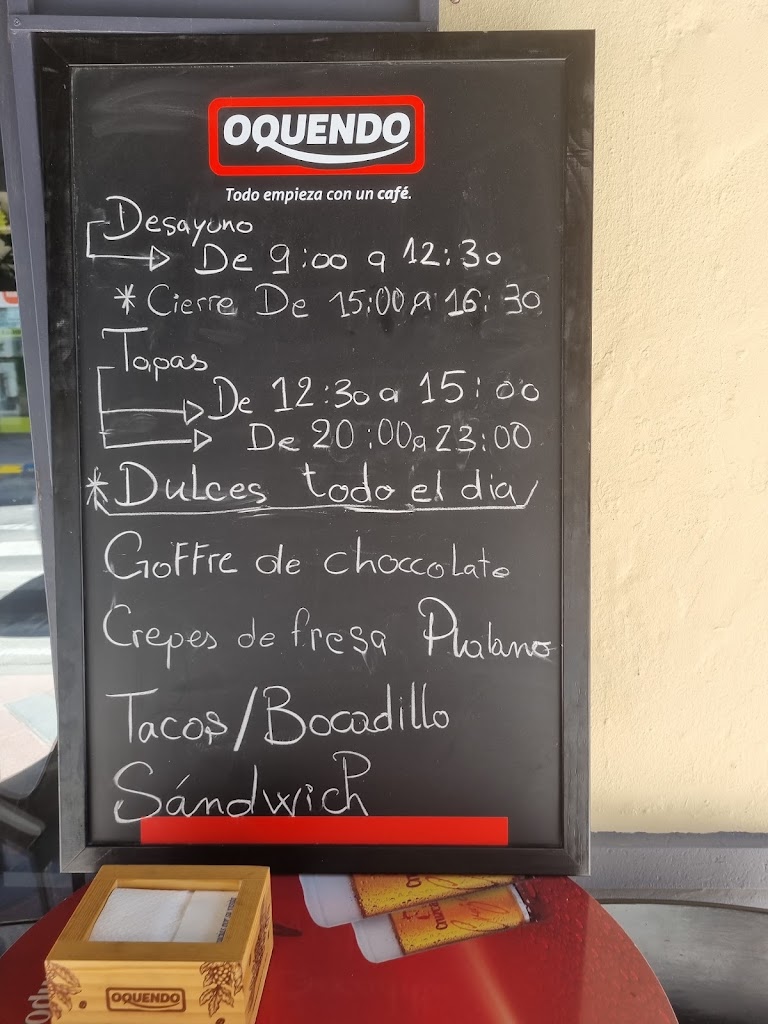 OQUENDO
Todo empieza con un café.
Desayuno
De 9:00 a 12:30
* Cierre De 15:00 a 16:30
Tapas
De 12:30 a 15:00
De 20:00 a 23:00
* Dulces todo el dia/
Goffre de choccolate
Crepes de fresa Platano
Tacos/Bocadillo
Sándwich
OQUENDO